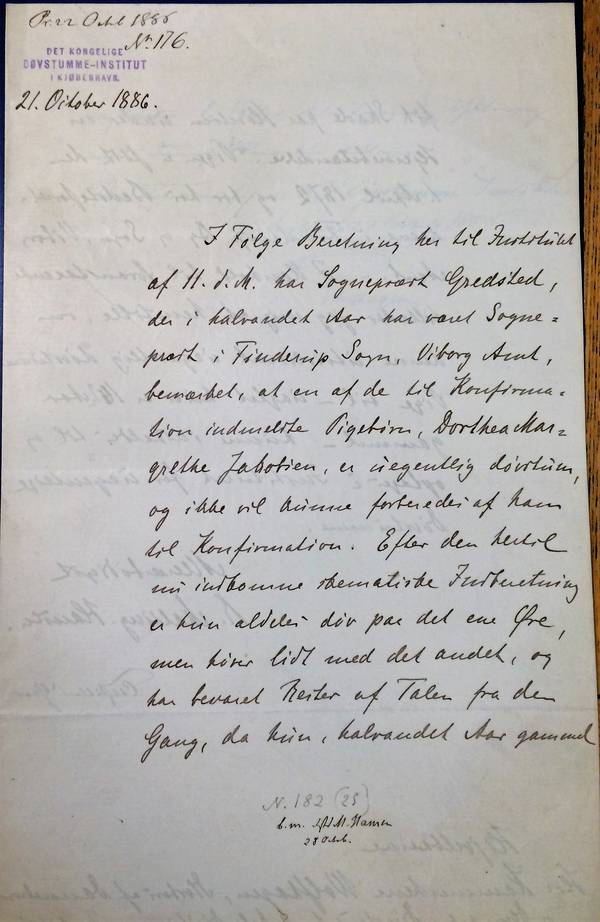 Pr. 22 Octbl 1886
No. 176.
DET KONGELIGE
DØVSTUMME-INSTITUT
I KJØBENHAVN.
21. October 1886.
I Følge Beretning her til Institutet
af 11. d. M. har Sognepræst Gredsted,
der i halvandet Aar har været Sogne=
præst i Finderup Sogn, Viborg Amt,
bemærket, at en af de til Konfirma=
tion indmeldte Pigebørn, Dorthea Mar=
grethe Jakobsen, er uegentlig døvstum,
og ikke vil kunne forberedes af ham
til Konfirmation. Efter den hertil
nu indkomne skematiske Indberetning
er hun aldeles døv paa det ene Øre,
men hører lidt med det andet, og
har bevaret Rester af Talen fra den
Gang, da hun, halvandet Aar gammel
N. 182 (25)
Hansen
28 Octb.